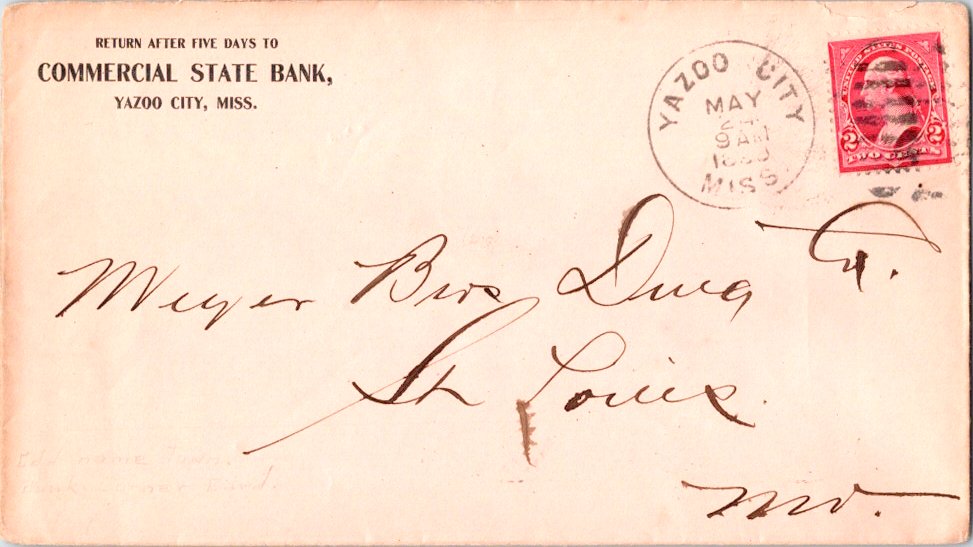 RETURN AFTER FIVE DAYS TO
COMMERCIAL STATE BANK,
YAZOO CITY, MISS.
YAZOO CITY
MAY
24
9 AM
MISS.
UNITED STATES POSTAGE
2 2
TWO CENTS
Meyer Bros Drug Co.
St Louis
Mo.